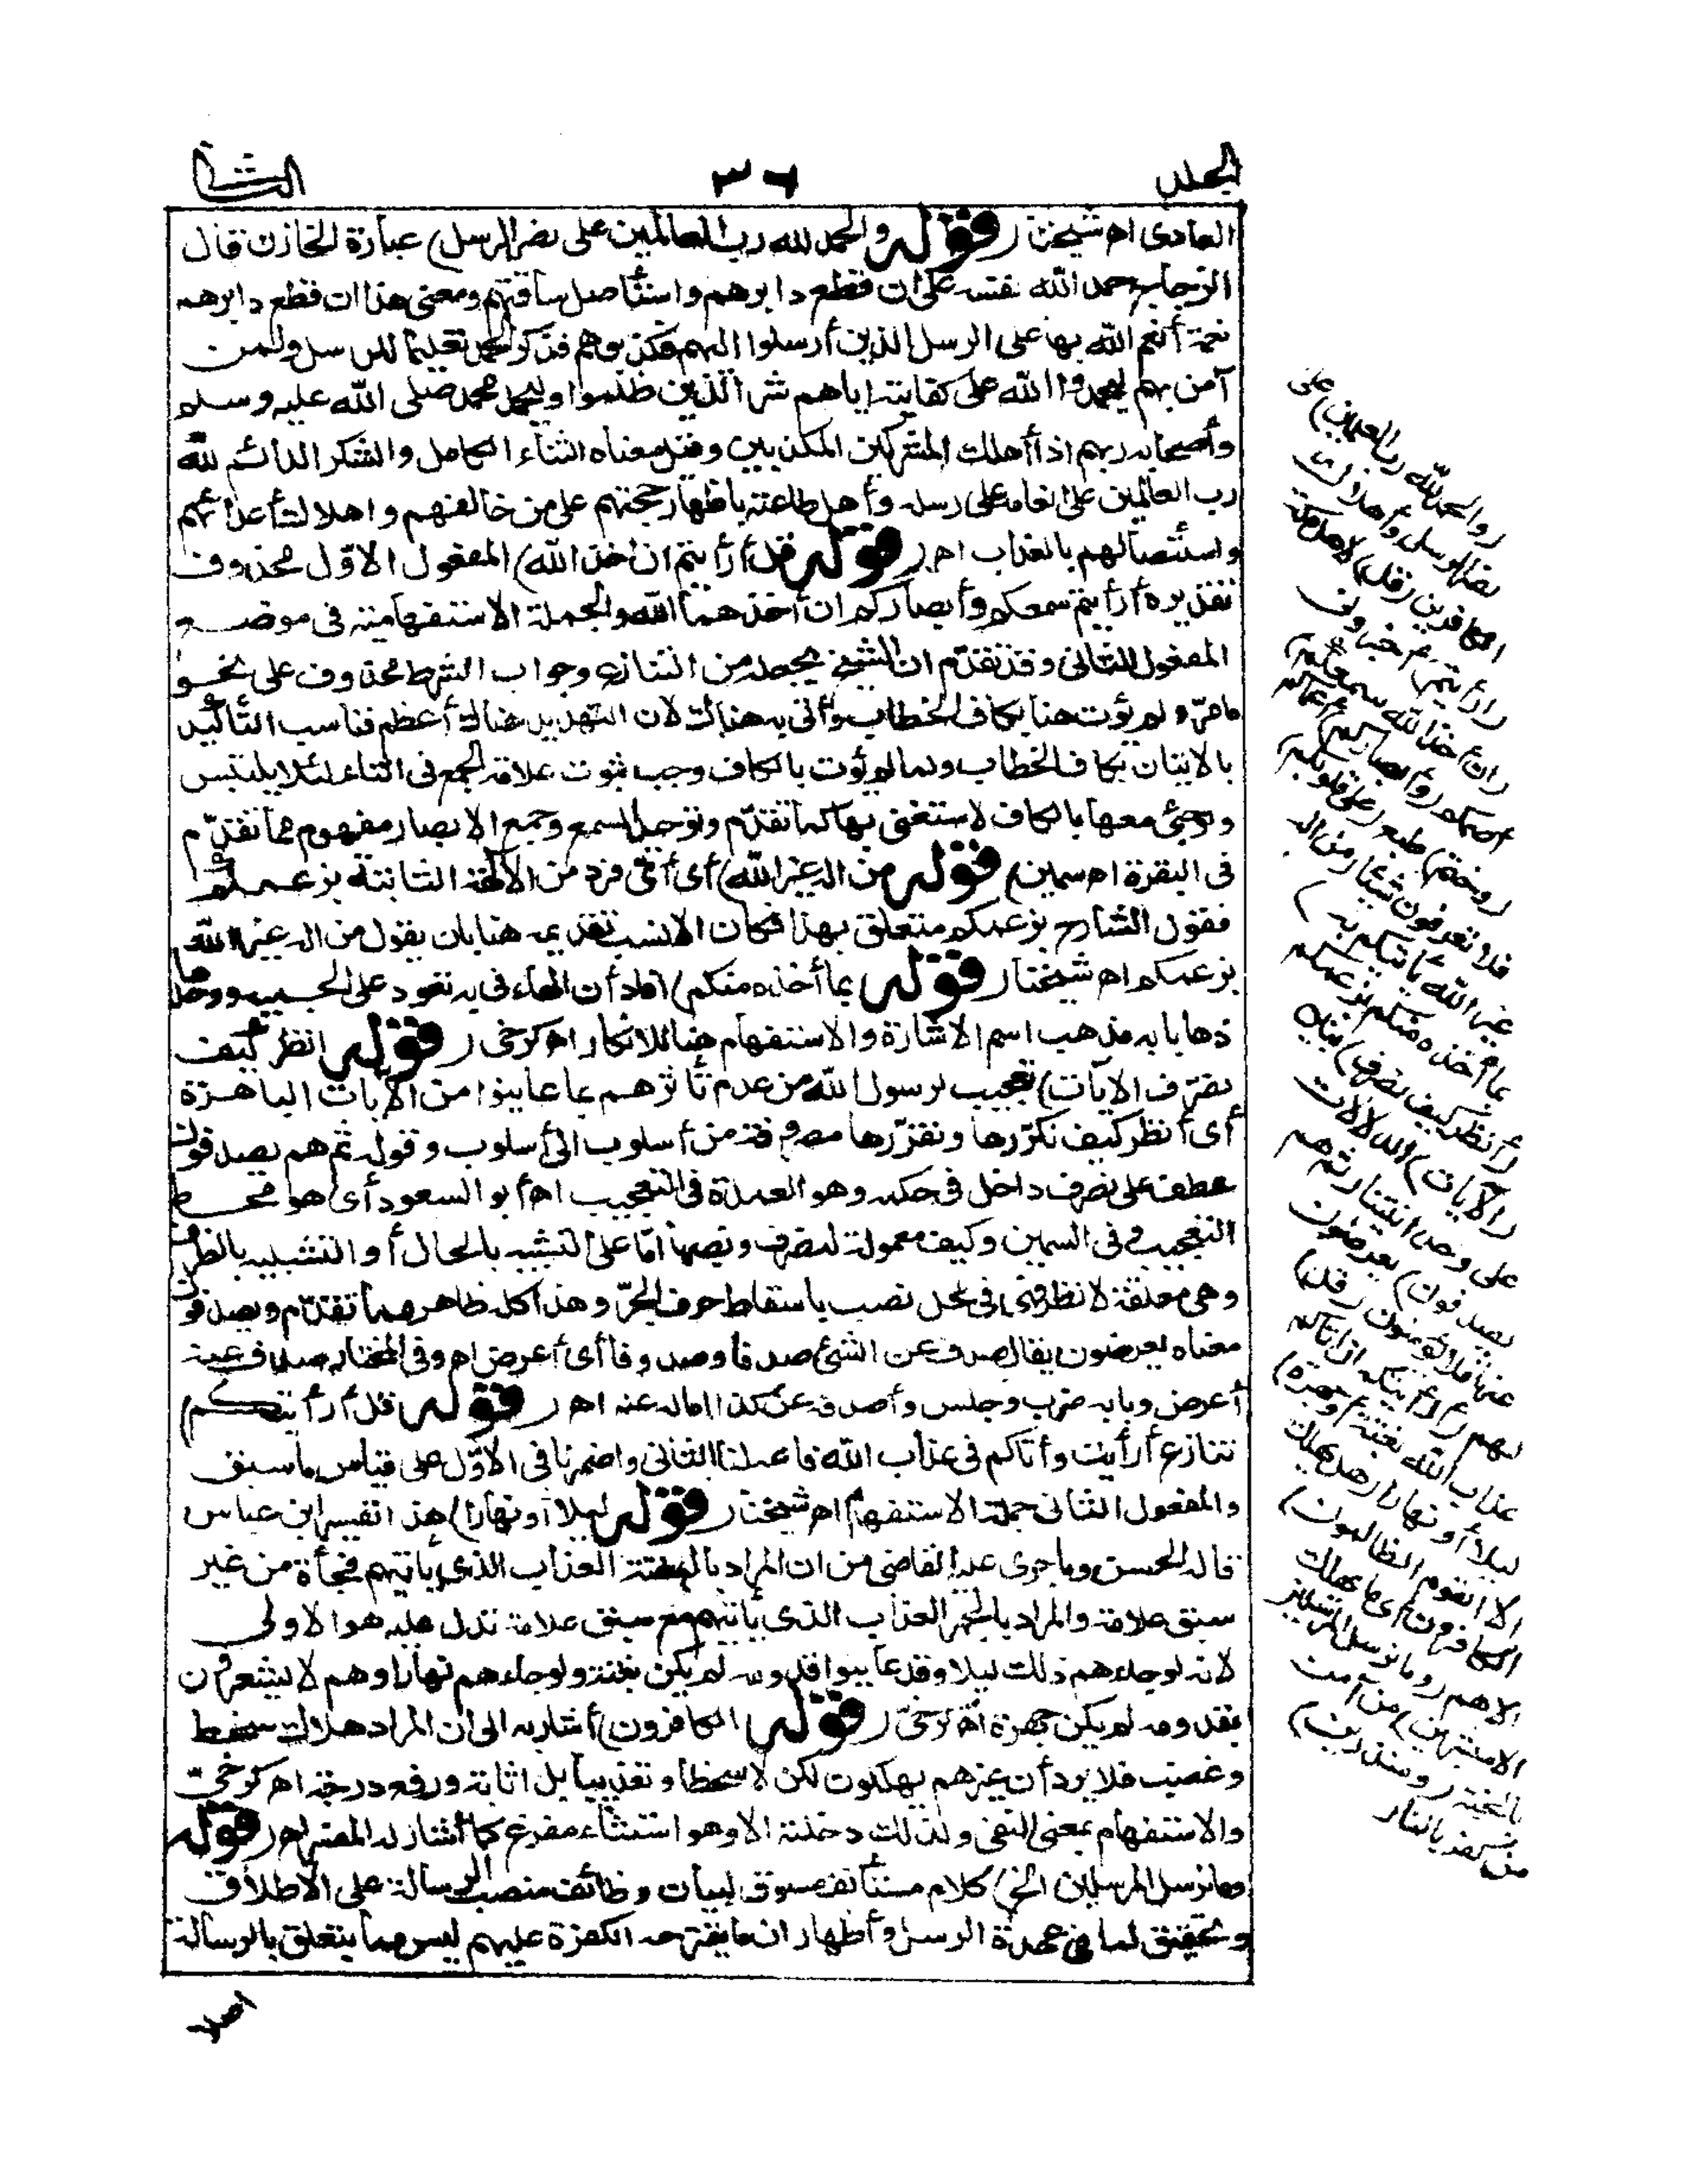 الجلد
٣٦
الثانى
العادى اھ شيخنا (قوله والحمد لله رب العالمين على نصر الرسل) عبارة الخازن قال
الزجاج حمد الله نفسه على ان قطع دابرهم واستأصل ساقتهم ومعنى هذا ان قطع دابرهم
نعمة أنعم الله بها على الرسل الذين أرسلوا اليهم فكذبوهم فذكر الحمد تعليما للرسل ولمن
آمن بهم ليحمدوا الله على كفايته اياهم شر الذين ظلموا وليحمد محمد صلى الله عليه وسلم
وأصحابه ربهم اذا أهلك المشركين المكذبين وقيل معناه الثناء الكامل والشكر الدائم لله
رب العالمين على انعامه على رسله وأهل طاعته باظهار حجتهم على من خالفهم واهلاك أعدائهم
واستئصالهم بالعذاب اھ (قوله قل أرأيتم ان أخذ الله) المفعول الاوّل محذوف
تقديره أرأيتم سمعكم وأبصاركم ان أخذهما الله والجملة الاستفهامية فى موضع
المفعول الثانى وقد تقدّم ان الشيخ يجعله من التنازع وجواب الشرط محذوف على نحو
مامرّ ولم يؤت هنا بكاف الخطاب وأتى به هناك لان التهديد هناك أعظم فناسب التأكيد
بالاتيان بكاف الخطاب ولما لم يؤت بالكاف وجب ثبوت علامة الجمع فى التاء لئلا يلتبس
ولو جئ معها بالكاف لاستغنى بها كما تقدّم وتوحيد السمع وجمع الابصار مفهوم مما تقدّم
فى البقرة اھ سمين (قوله من اله غير الله) أى أىّ فرد من الآلهة الثابتة بزعمكم
فقول الشارح بزعمكم متعلق بهذا فكان الانسب تقديمه هنا بان يقول من اله غير الله
بزعمكم اھ شيخنا (قوله بما أخذه منكم) أفاد أن الهاء فى به تعود على الجميع ووحد
ذهابا به مذهب اسم الاشارة والاستفهام هنا للانكار اھ كرخى (قوله انظر كيف
نصرّف الآيات) تعجيب لرسول الله من عدم تأثرهم بما عاينوا من الآيات الباهرة
أى أنظر كيف نكرّرها ونقرّرها مصروفة من أسلوب الى أسلوب وقوله ثم هم يصدفون
عطف على نصرف داخل فى حكمه وهو العمدة فى التعجيب اھ أبو السعود أى هو محط
التعجيب وفى السمين وكيف معمولة لنصرف ونصبها امّا على التشبيه بالحال أو التشبيه بالظرف
وهى معلقة لانظر فهى فى محل نصب باسقاط حرف الجرّ وهذا كله ظاهر مما تقدّم ويصدفون
معناه يعرضون يقال صدف عن الشئ صدفا وصدوفا أى أعرض اھ وفى المختار صدف عنه
أعرض وبابه ضرب وجلس وأصدفه عن كذا اماله عنه اھ (قوله قل أرأيتكم)
تنازع أرأيت وأتاكم فى عذاب الله فاعملنا الثانى واضمرنا فى الاوّل على قياس ما سبق
والمفعول الثانى جملة الاستفهام اھ شيخنا (قوله ليلا أو نهارا) هذا تفسير ابن عباس
قاله الحسن وما جرى عليه القاضى من ان المراد بالبغتة العذاب الذى يأتيهم فجأة من غير
سبق علامة والمراد بالجهر العذاب الذى يأتيهم مع سبق علامة تدل عليه هو الاولى
لانه لو جاءهم ذلك ليلا وقد عاينوا قدومه لم يكن بغتة ولو جاءهم نهارا وهم لا يشعرون
بقدومه لم يكن جهرة اھ كرخى (قوله الكافرون) أشار به الى ان المراد هلاك سخط
وغضب فلا يرد أن غيرهم يهلكون لكن لا سخطا وتعذيبا بل اثابة ورفع درجة اھ كرخىّ
والاستفهام بمعنى النفى ولذلك دخلته الا وهو استثناء مفرغ كما أشار له المفسر اھ (قوله
وما نرسل المرسلين الخ) كلام مستأنف مسوق لبيان وظائف منصب الرسالة على الاطلاق
وتحقيق لما فى عهدة الرسل وأظهار ان ما يقترحه الكفرة عليهم ليس مما يتعلق بالرسالة
(والحمد لله رب العالمين) على
نصر الرسل وأهلاك
الكافرين (قل) لاهل مكة
(أرأيتم) أخبرونى
(ان أخذ الله سمعكم)
أصمكم (وأبصاركم) أعماكم
(وختم) طبع (على قلوبكم)
فلا تعرفون شيئا (من اله
غير الله يأتيكم به)
بما أخذه منكم بزعمكم
(أنظر كيف نصرف) نبين
(الآيات) الدلالات
على وحدانيتنا (ثم هم
يصدفون) يعرضون
عنها فلا يؤمنون (قل)
لهم (أرأيتكم ان أتاكم
عذاب الله بغتة أو جهرة)
ليلا أو نهارا (هل يهلك
الا القوم الظالمون)
الكافرون أى ما يهلك
الا هم (وما نرسل المرسلين
الا مبشرين) من آمن
بالجنة (ومنذرين)
من كفر بالنار
اصلا